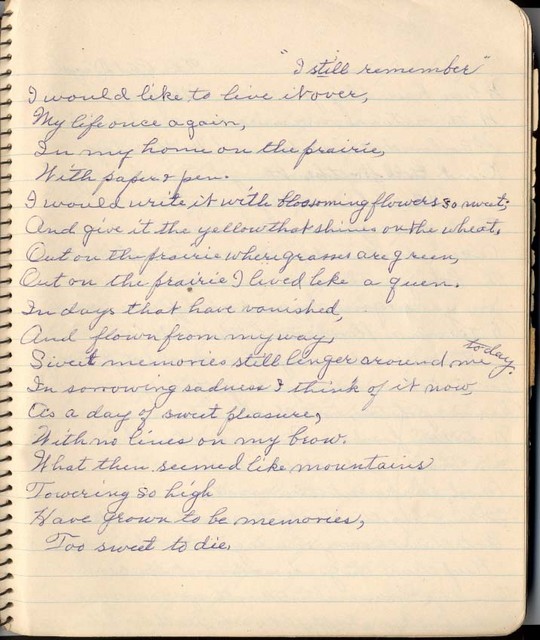 "I still remember"
I would like to live it over,
My life once again,
In my home on the prairie,
With paper & pen.
I would write it with blossoming flowers so sweet;
And give it the yellow that shines on the wheat,
Out on the prairie where grasses are green,
Out on the prairie I lived like a queen.
In days that have vanished,
And flown from my way,
Sweet memories still linger around me today.
In sorrowing sadness I think of it now,
As a day of sweet pleasure,
With no lines on my brow.
What then seemed like mountains
Towering so high
Have grown to be memories,
Too sweet to die.